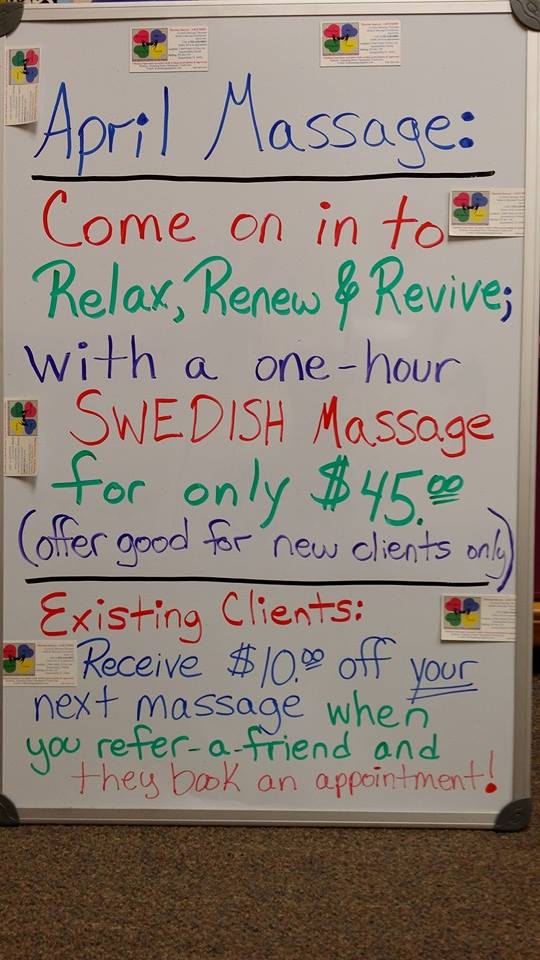 April Massage:
Come on in to
Relax, Renew & Revive;
with a one-hour
SWEDISH Massage
for only $45.00
(offer good for new clients only)
Existing Clients:
Receive $10.00 off your
next massage when
you refer-a-friend and
they book an appointment!